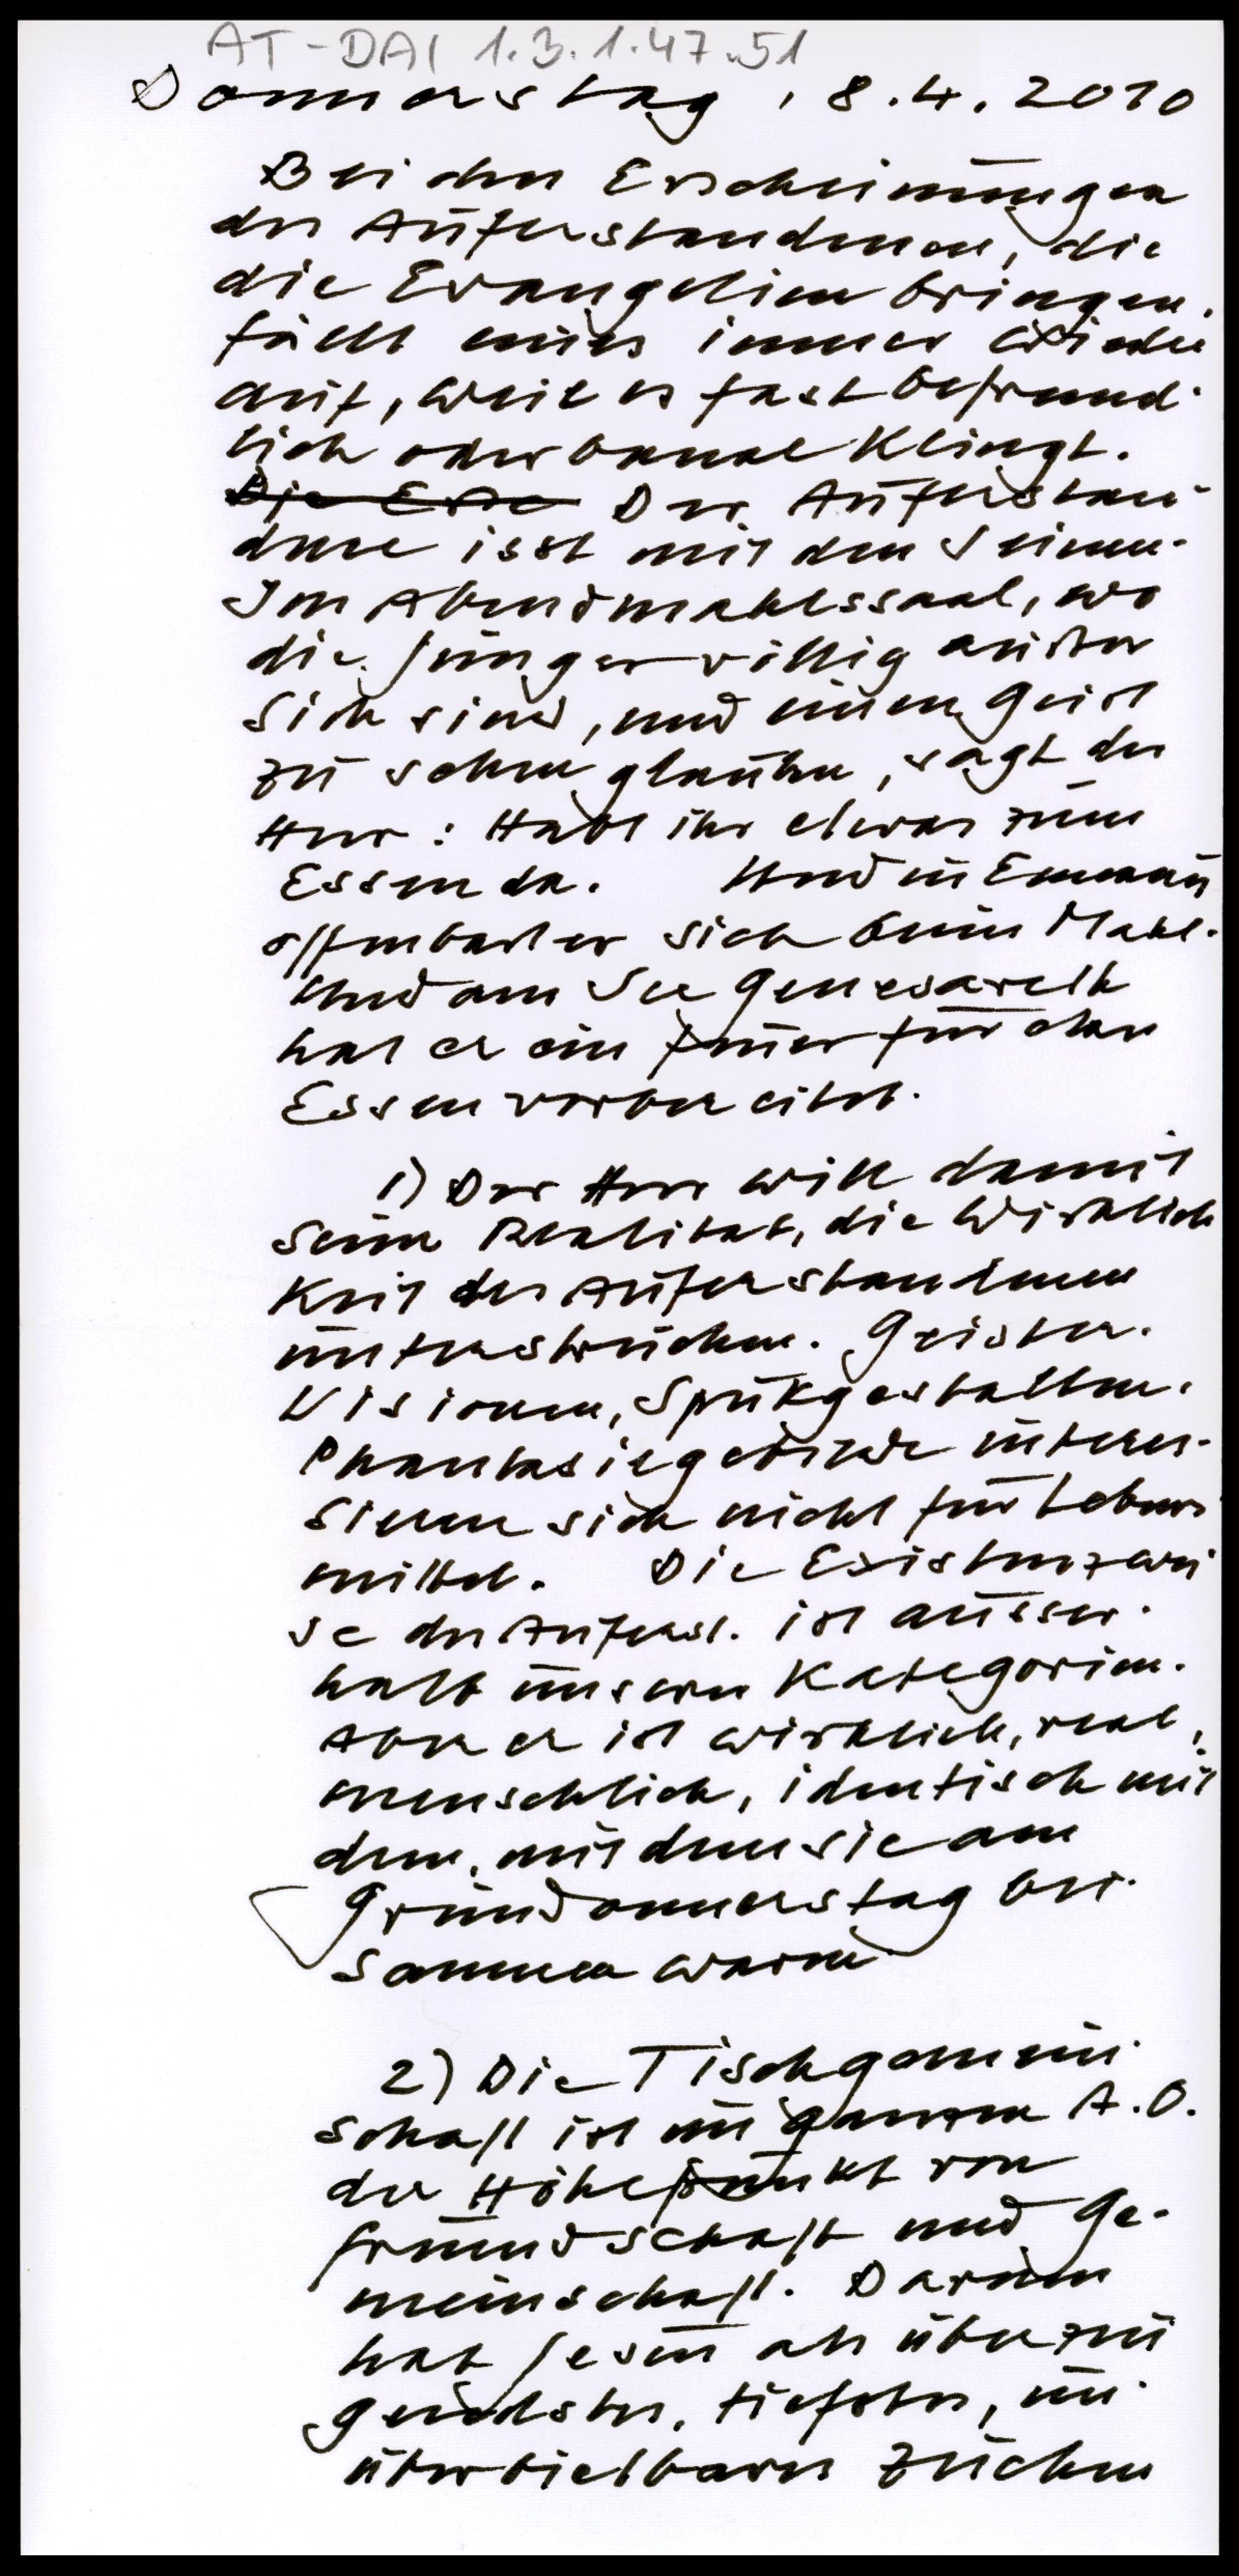 AT-DAI 1.3.1.47.51
Donnerstag, 8.4.2010
Bei den Erscheinungen
des Auferstandenen, die
die Evangelien bringen,
fällt eines immer wieder
auf, weil es fast befremd-
lich oder banal klingt.
Die Der Auferstan-
dene isst mit den Seinen.
Im Abendmahlssaal, wo
die Jünger völlig außer
sich sind, und einen Geist
zu sehen glauben, sagt der
Herr: Habt ihr etwas zum
Essen da. Und in Emmaus
offenbart er sich beim Mahl.
Und am See Genesareth
hat er ein Feuer für das
Essen vorbereitet.
1) Der Herr will damit
seine Realität, die Wirklich
keit des Auferstandenen
unterstreichen. Geister,
Visionen, Spukgestalten,
Phantasiegebilde interes-
sieren sich nicht für Lebens
mittel. Die Existenzwei
se des Auferst. ist ausser-
halb unserer Kategorien.
Aber er ist wirklich, real,
menschlich, identisch mit
dem, mit dem sie am
Gründonnerstag bei-
sammen waren
2) Die Tischgemein-
schaft ist im ganzen A.O.
der Höhepunkt von
Freundschaft und Ge-
meinschaft. Darum
hat Jesus als überzeu
gendstes, tiefstes, un-
überbietbares Zeichen